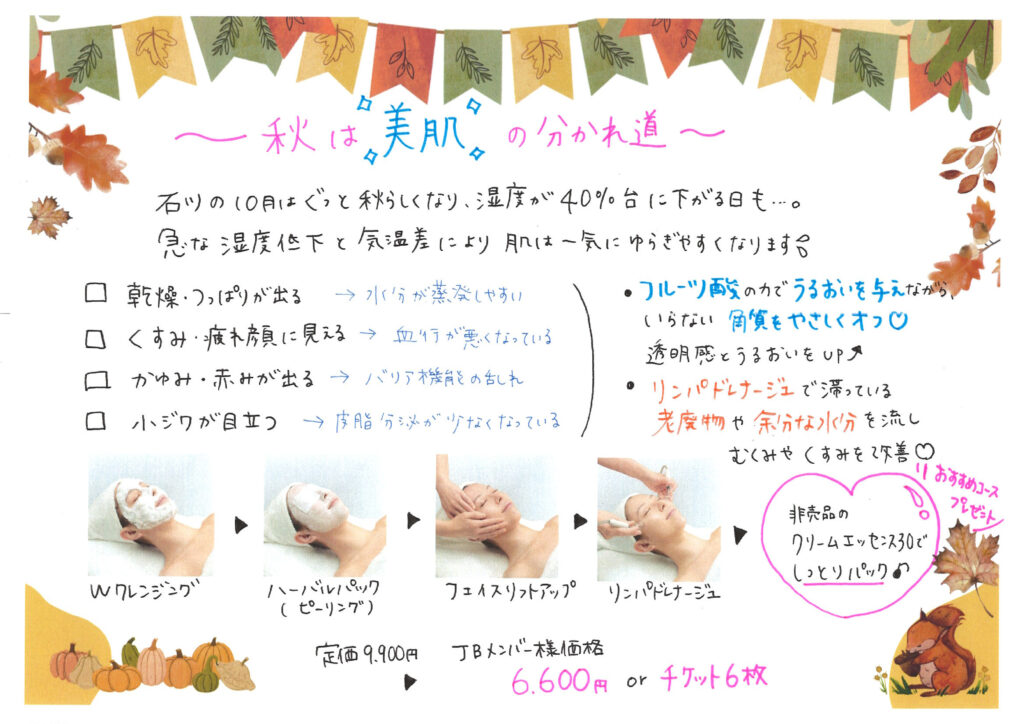 ～秋は美肌の分かれ道～
石川の10月はぐっと秋らしくなり、湿度が40%台に下がる日も…。
急な湿度低下と気温差により肌は一気にゆらぎやすくなります
□ 乾燥・つっぱりが出る → 水分が蒸発しやすい
□ くすみ・疲れ顔に見える → 血行が悪くなっている
□ かゆみ・赤みが出る → バリア機能の乱れ
□ 小ジワが目立つ → 皮脂分泌が少なくなっている
・フルーツ酸の力でうるおいを与えながら、
いらない角質をやさしくオフ♡
透明感とうるおいをUP↗
・リンパドレナージュで滞っている
老廃物や余分な水分を流し
むくみやくすみを改善♡
Wクレンジング
▶
ハーバルパック
(ピーリング)
▶
フェイスリフトアップ
▶
リンパドレナージュ
▶
おすすめコース
プレゼント
非売品の
クリームエッセンス30で
しっとりパック♪
定価9.900円 JBメンバー様価格
▶ 6.600円 or チケット6枚